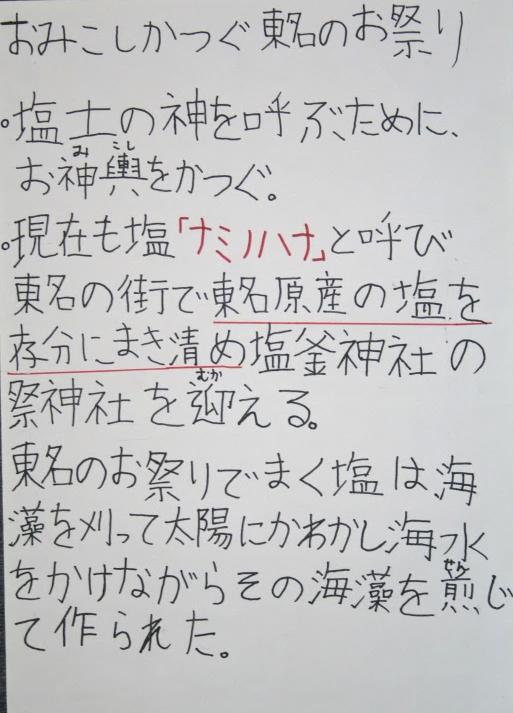 おみこしかつぐ東名のお祭り
•塩土の神を呼ぶために、
みこし
お神輿をかつぐ。
•現在も塩「ナミノハナ」と呼び
東名の街で東名原産の塩を
存分にまき清め塩釜神社の
むか
祭神社を迎える。
東名のお祭りでまく塩は海
藻を刈って太陽にかわかし海水
せん
をかけながらその海藻を煎じ
て作られた。